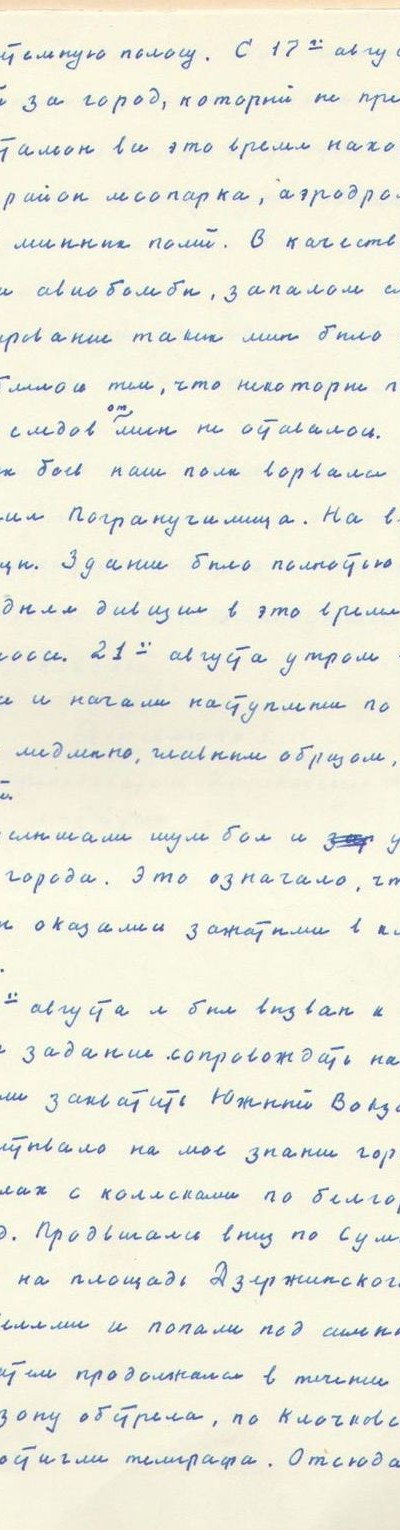 темную полосу. С 17ᵘ авгус
й за город, который не пре
тальон ва это время нахо
район лесопарка, аэродро
минных полей. В качеств
авиабомбы, запалом с
ирование таких мин было
блялось тем, что некоторые п
следов от мин не оставалось.
х боев наш полк ворвался
Погранучилища. На в
цы. Здание было полностью
дняя дивизия в это время
21ᵘ августа утром
и начали наступление по
медленно, главным образом,
й.
слышали шум боя и у
города. Это означало, чт
оказались зажатыми в к
.
ᵘ августа я был вызван к
задание сопровождать на
захватить Южный Вокза
итывало на мое знание гор
с колясками по белгор
д. Продвигались вниз по Сум
на площадь Дзержинског
и попали под сильн
продолжался в течение
зону обстрела, по Клочковс
остигли телеграфа. Отсюда